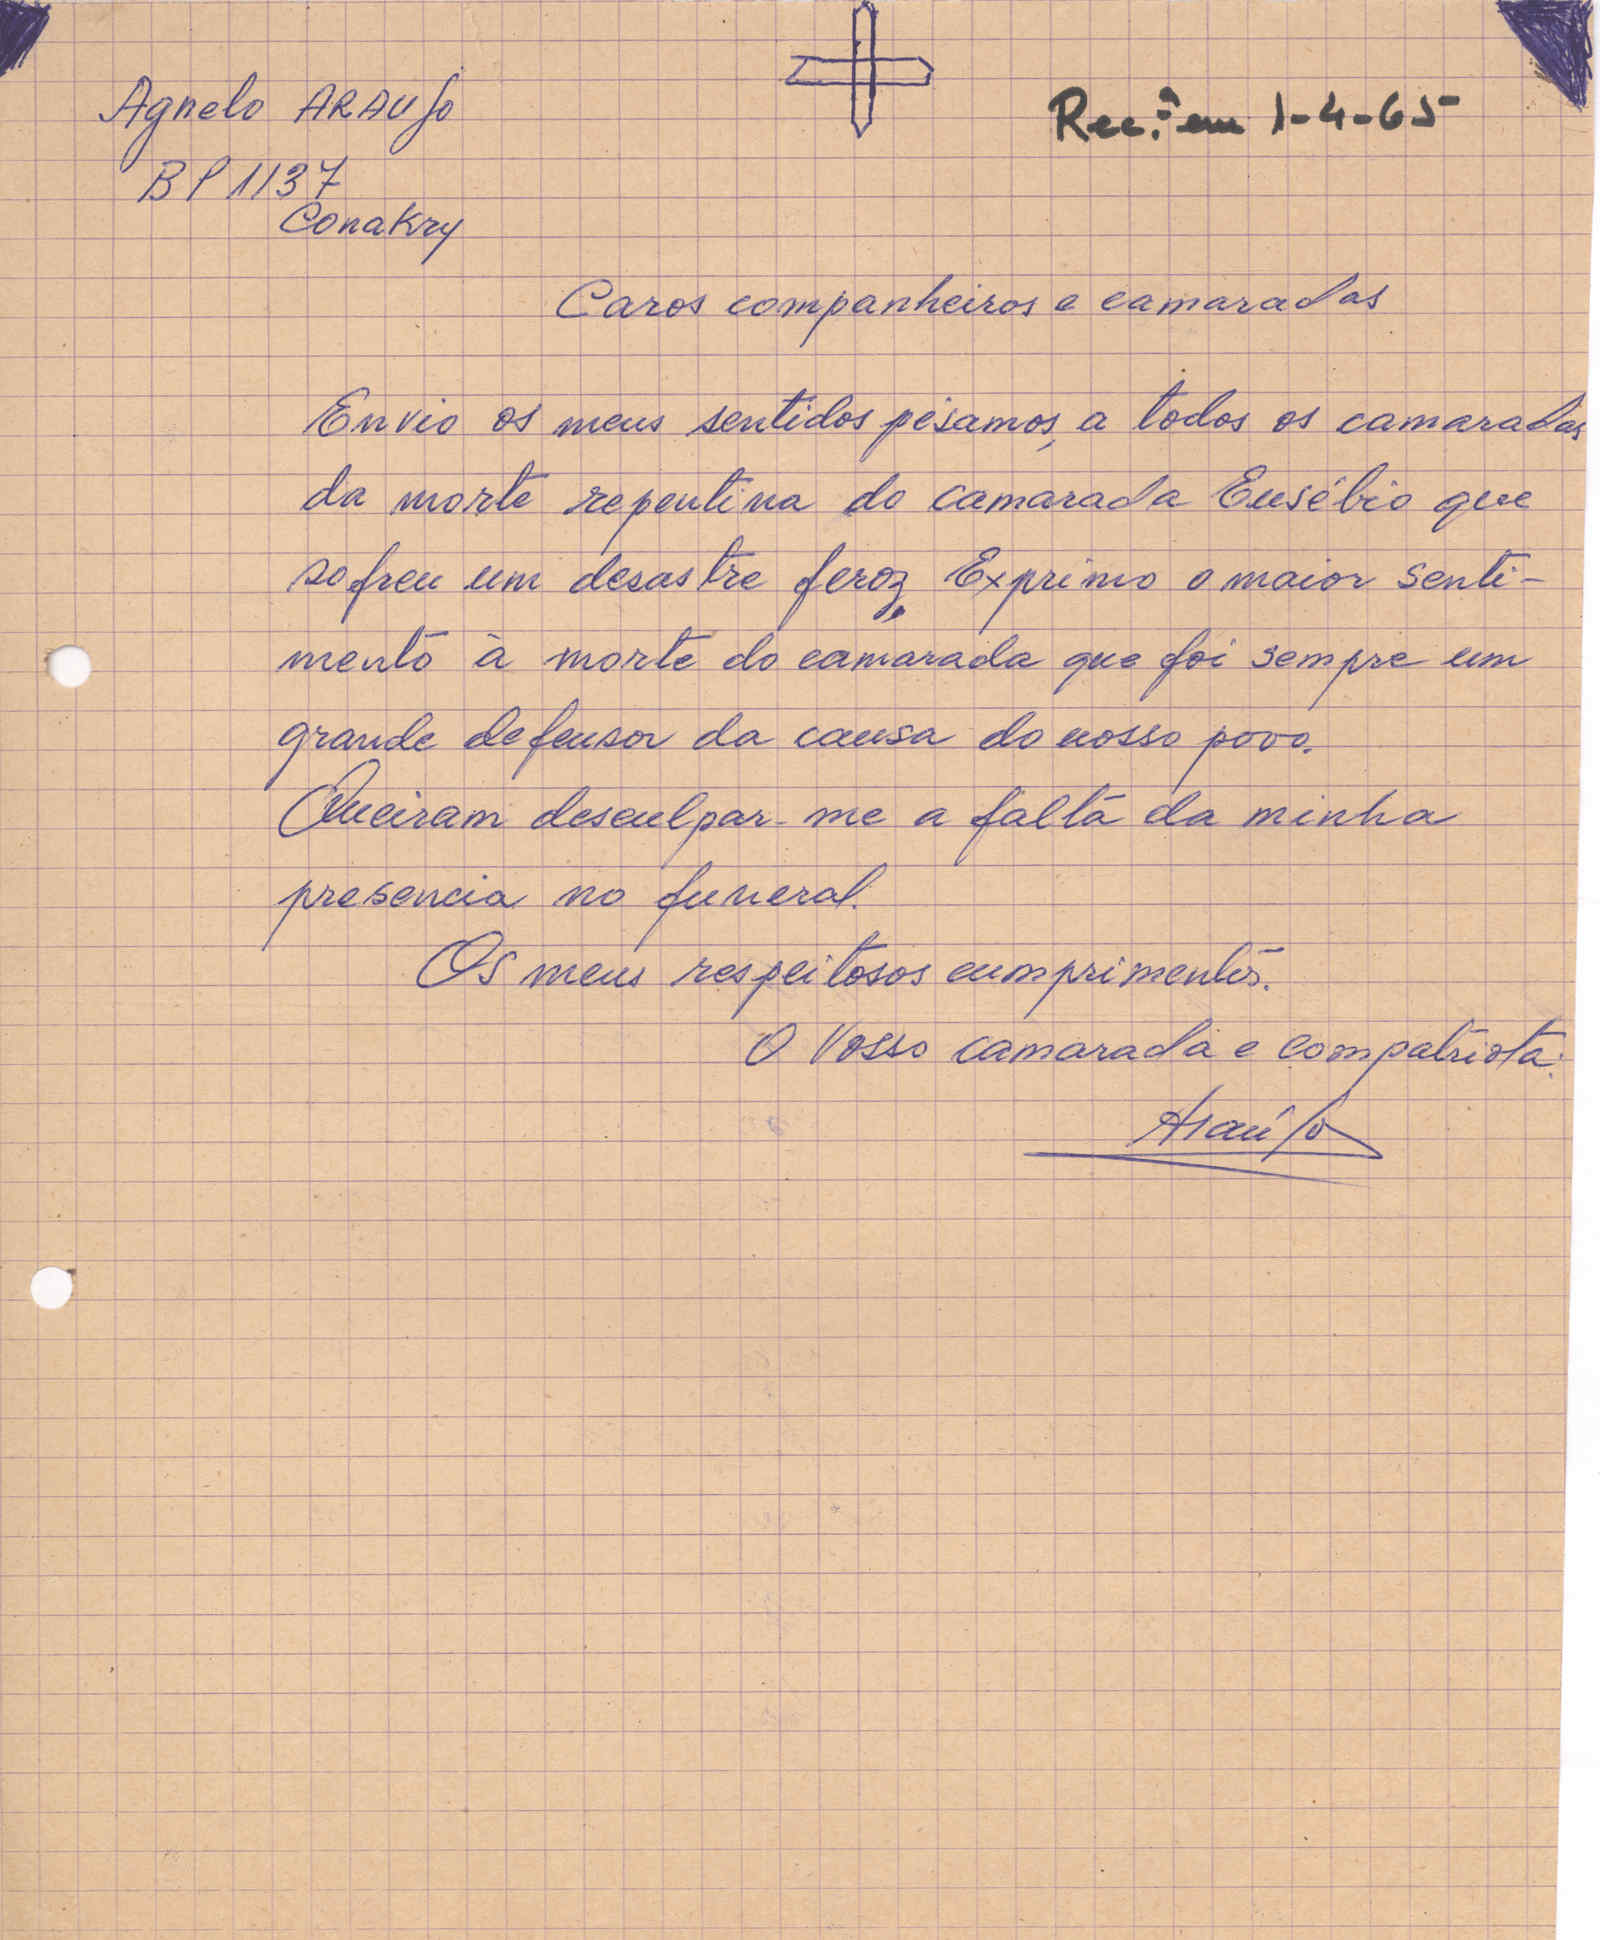 Agnelo ARAUJO
Rec.º em 1-4-65
BP 1137
Conakry
Caros companheiros e camaradas
Envio os meus sentidos pêsamos, a todos os camaradas
da morte repentina do camarada Eusébio que
sofreu um desastre feroz, Exprimo o maior senti-
mento à morte do camarada que foi sempre um
grande defensor da causa do nosso povo.
Queiram desculpar-me a falta da minha
presencia no funeral.
Os meus respeitosos cumprimentos.
O Vosso camarada e compatriota:
Araújo